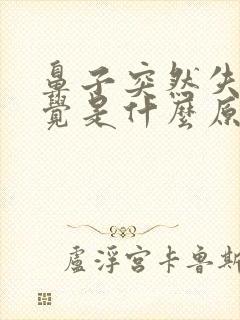 鼻子突然失
覺是什麼原
盧浮宮卡魯斯